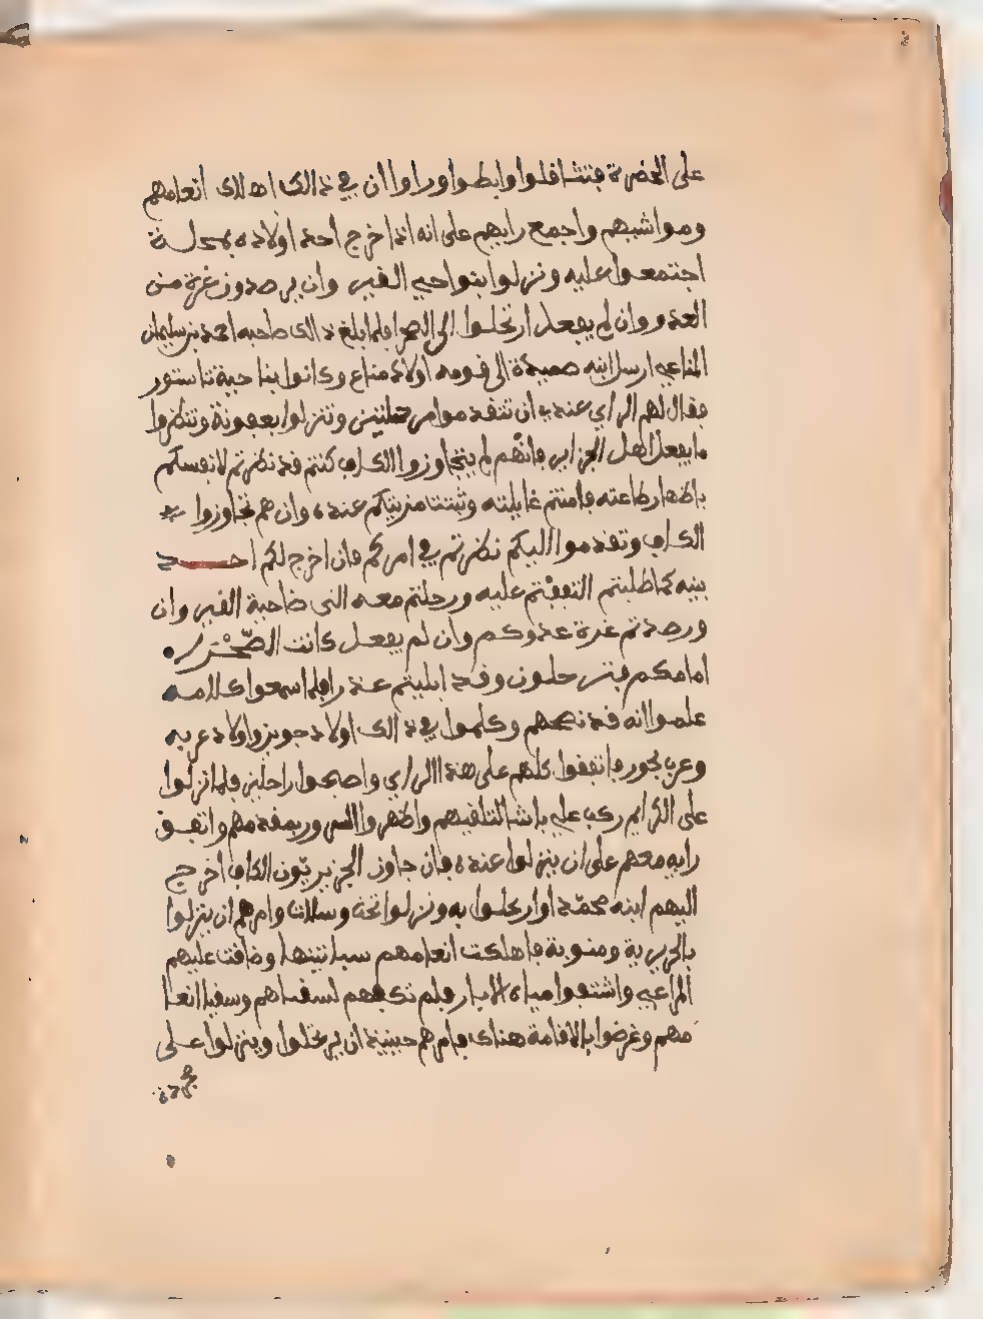 على الحضرة فتثاقلوا وابطوا وراوا ان في ذالك اهلاك انعامهم
ومواشيهم واجمع رايهم على انه اذا خرج احد اولاده بمحلة
اجتمعوا عليه ونزلوا بنواحي القير وان يرصدون غرة من
العدو وان لم يفعل ارتحلوا الى الصحرا فلما بلغ ذالك صاحبه احمد بن سليمان
المناعي ارسل ابنه حميدة الى قومه اولاد مناع وكانوا بناحية تاستور
فقال لهم الراي عندي ان تتقدموا مرحلتين وتنزلوا بعجونة وتنظروا
ما يفعل اهل الجزاير فانهم لم يتجاوزوا الكاف كنتم قد نظرتم لانفسكم
باظهار طاعته فامنتم غايلته وثبتت مزيتكم عنده وان هم تجاوزوا
الكاف وتقدموا اليكم نظرتم في امركم فان اخرج لكم احد
بنيه كما طلبتم التففتم عليه ورحلتم معه الى ضاحية القير وان
ورصدتم غرة عدوكم وان لم يفعل كانت الصّحْرا
امامكم فترحلون وقد ابليتم عذرا فلما سمعوا كلامه
علموا انه قد نصحهم وكلموا في ذالك اولاد جوين واولاد عربه
وعرب مجور فاتفقوا كلهم على هذا الراي واصبحوا راحلين فلما نزلوا
على الكرايم ركب علي باشا لتلقيهم واظهروا السرور بمقدمهم واتفق
رايه معهم على ان ينزلوا عنده فان جاوز الجزيريّون الكاف اخرج
اليهم ابنه محمّدا وارتحلوا به ونزلوا تحت وسلات وامرهم ان ينزلوا
بالحريرية ومنوبة فاهلكت انعامهم سبانيتها وضاقت عليهم
المراعي واشتفوا مياه الابار فلم تكفهم لسقياهم وسقيا انعا
مهم وغرضوا بالاقامة هناك فامرهم حينيذ ان يرتحلوا وينزلوا على